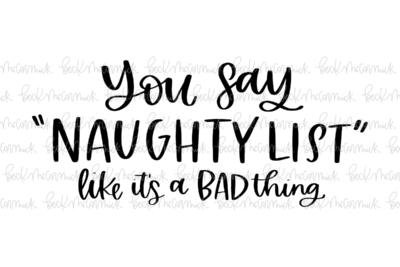 You say
"NAUGHTY LIST"
like it's a BAD thing